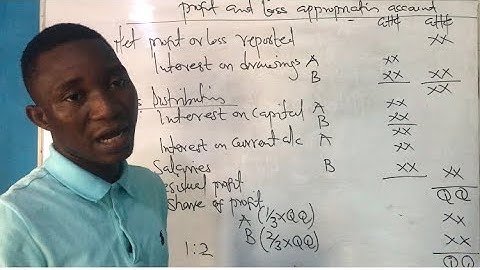 profit and loss appropriation account
GH¢ GH¢
Net profit or loss reported xx
Interest on drawings A xx
B xx xx
xx
Distribution
Interest on Capital A xx
B xx
Interest on Current a/c A xx
xx
Salaries B xx xx
Residual profit QQ
Share of profit
A (1/3 x QQ) xx
B (2/3 x QQ) xx
1:2 QQ